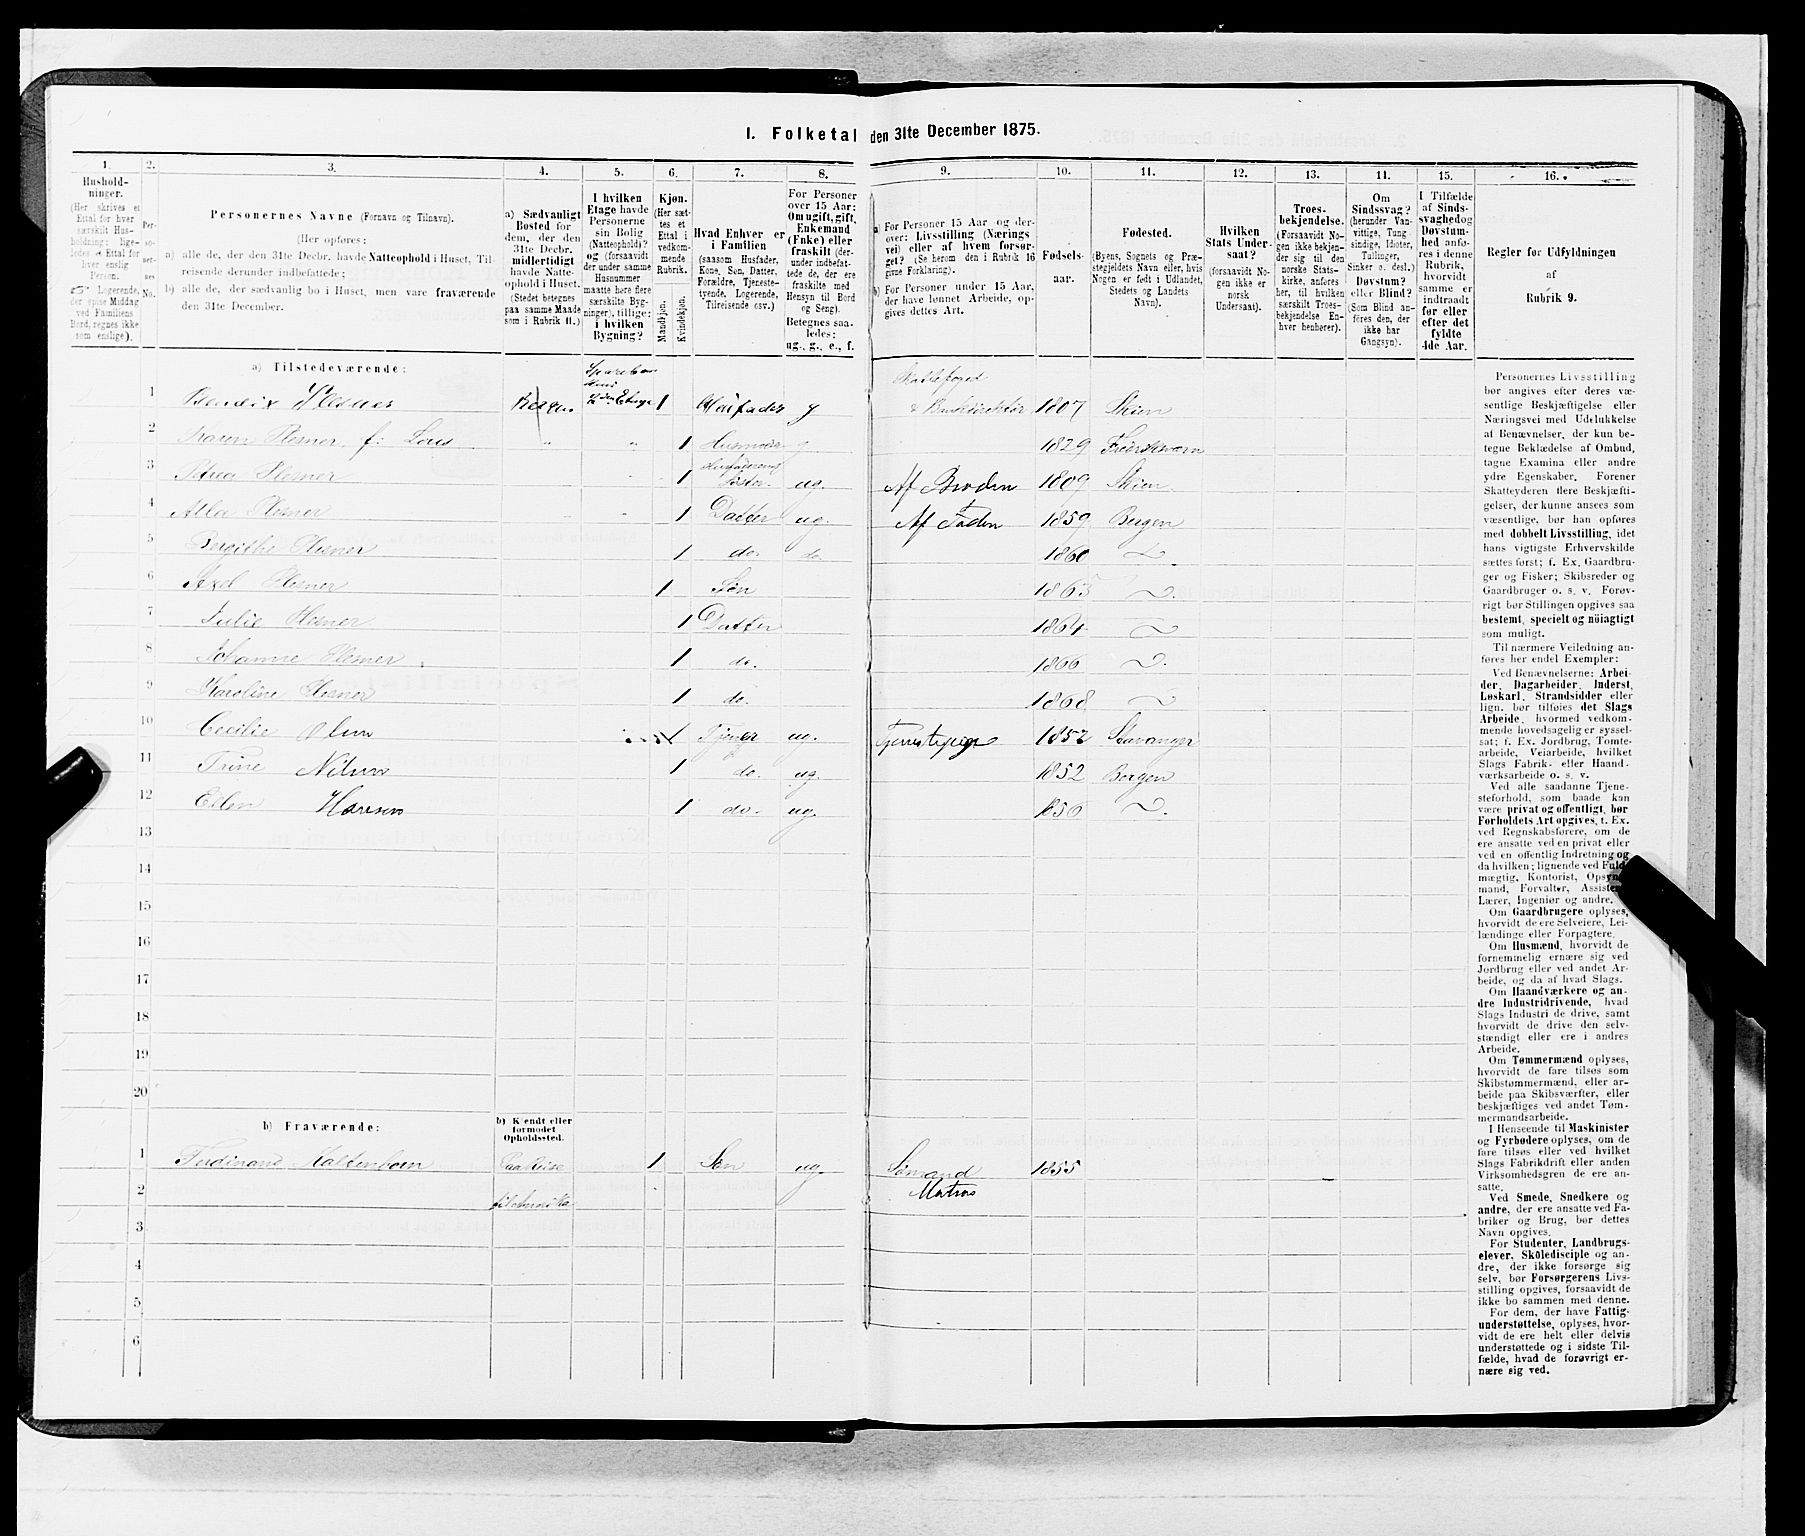 I. Folketal den 31te December 1875.
1. 2. 3. 4. 5. 6. 7. 8. 9. 10. 11. 12. 13. 14. 15. 16.
Hushold-
ninger.
(Her skrives et
Ettal for hver
særskilt Hus-
holdning; lige-
ledes et Ettal for
hver enslig
Person.
Logerende,
der spise Middag
ved Familiens
Bord, regnes ikke
som enslige).
Per-
so-
ner-
nes
No.
Personernes Navne (Fornavn og Tilnavn).
(Her opføres:
a) alle de, der den 31te Decbr. havde Natteophold i Huset, Til-
reisende derunder indbefattede;
b) alle de, der sædvanlig bo i Huset, men vare fraværende
den 31te December.
a) Sædvanligt
Bosted for
dem, der den
31te Decbr.
midlertidigt
havde Natte-
ophold i Huset.
(Stedet betegnes
paa samme Maade
som i Rubrik 11.)
I hvilken
Etage havde
Personerne
sin Bolig
(Natteophold)?
og (forsaavidt
der under samme
Husnummer
maatte høre flere
særskilte Byg-
ninger), tillige:
i hvilken
Bygning?
Kjøn.
(Her sæt-
tes et
Ettal i
vedkom-
mende
Rubrik.
Mandkjøn.
Kvindekjøn.
Hvad Enhver er
i Familien
(saasom Husfader,
Kone, Søn, Datter,
Forældre, Tjeneste-
tyende, Logerende,
Tilreisende osv.)
For Personer
over 15 Aar:
Om ugift, gift,
Enkemand
(Enke) eller
fraskilt (der-
under indbefat-
tede de, der ere
fraskilte med
Hensyn til Bord
og Seng).
Betegnes saa-
ledes:
ug., g., e., f.
a) For Personer 15 Aar og der-
over: Livsstilling (Nærings
vei) eller af hvem forsør-
get? (Se herom den i Rubrik 16
givne Forklaring).
b) For Personer under 15 Aar,
der have lønnet Arbeide, op-
gives dettes Art.
Fødsels-
aar.
Fødested.
(Byens, Sognets og Præ-
stegjeldets Navn eller, hvis
Nogen er født i Udlandet,
Stedets og Landets
Navn).
Hvilken
Stats Under-
saat?
(forsaavidt No-
gen ikke er
norsk
Undersaat).
Troes-
bekjendelse.
(Forsaavidt No-
gen ikke bekjen-
der sig til den
norske Stats-
kirke, anføres
her, til hvilken
særskilt Troes-
bekjendelse En-
hver henhører).
Om
Sindssvag?
(herunder Van-
vittige, Tung-
sindige, Idioter,
Tullinger,
Sinker o. desl.)
Døvstum?
eller Blind?
(Som Blind an-
føres den, der
ikke har
Gangsyn).
I Tilfælde
af Sinds-
svaghed og
Døvstum-
hed anfø-
res i denne
Rubrik,
hvorvidt
samme er
indtraadt
før eller
efter det
fyldte
4de Aar.
Regler for Udfyldningen
af
Rubrik 9.
a) Tilstedeværende:
1 Bendix Plesner Bergen 1 Husfader g Skattefoged & Bankdirektør 1807 Skien
2 Karen Plesner, f: " " 1 Husmoder g 1829 Fredriksværn
3 Petrea Plesner 1 Husfaderens Søster ug. Af Broderen 1809 Skien
4 Plesner 1 Datter ug. Af Faderen 1859 Bergen
5 Bergithe Plesner 1 do. do. 1860
6 Axel Plesner 1 Søn 1863
7 Julie Plesner 1 Datter 1864
8 Johanne Plesner 1 do. 1866
9 Karoline Plesner 1 do. 1868
10 Cecilie Olsen 1 Tjener ug. Tjenestepige 1852 Stavanger
11 Trine Nilsen 1 do. ug. 1852 Bergen
12 Ellen Hansen 1 do. ug. 1856
13
14
15
16
17
18
19
20
b) Fraværende:
b) Kjendt eller
formodet
Opholdssted.
1 Ferdinand Kaltenborn Paa Reise 1 Søn ug Sømand 1855
2 til Amerika Matros
3
4
4
5
6
Personernes Livsstilling
bør angives efter deres væ-
sentlige Beskjæftigelse eller
Næringsvei med Udelukkelse
af Benævnelser, der kun be-
tegne Beklædelse af Ombud,
tagne Examina eller andre
ydre Egenskaber. Forener
Skatteyderen flere Beskjæfti-
gelser, der kunne ansees som
væsentlige, bør han opføres
med dobbelt Livsstilling, idet
hans vigtigste Erhvervskilde
sættes først; f. Ex. Gaardbru-
ger og Fisker; Skibsreder og
Gaardbruger o. s. v. Forøv-
rigt bør Stillingen opgives saa
bestemt, specielt og nøiagtigt
som muligt.
Til nærmere Veiledning an-
føres her endel Exempler:
Ved Benævnelserne: Arbei-
der, Dagarbeider, Inderst,
Løskarl, Strandsidder eller
lign. bør tilføies det Slags
Arbeide, hvormed vedkom-
mende hovedsagelig er syssel-
sat; f. Ex. Jordbrug, Tomte-
arbeide, Veiarbeide, hvilket
Slags Fabrik- eller Haand-
værksarbeide o. s. v.
Ved alle saadanne Tjene-
steforhold, som baade kan
være privat og offentligt, bør
Forholdets Art opgives, t. Ex.
ved Regnskabsførere, om de
ere ansatte ved en privat eller
ved en offentlig Indretning og
da hvilken; lignende ved Fuld-
mægtig, Kontorist, Opsyns-
mand, Forvalter, Assistent,
Lærer, Ingeniør og andre.
Om Gaardbrugere oplyses,
hvorvidt de ere Selveiere, Lei-
lændinge eller Forpagtere.
Om Husmænd, hvorvidt de
fornemmelig ernære sig ved
Jordbrug eller ved andet Ar-
beide, og da af hvad Slags.
Om Haandværkere og an-
dre Industridrivende, hvad
Slags Industri de drive, samt
hvorvidt de drive den selv-
stændigt eller ere i andres
Arbeide.
Om Tømmermænd oplyses,
hvorvidt de fare tilsøs som
Skibstømmermænd, eller ar-
beide paa Skibsværfter, eller
beskjæftiges ved andet Tøm-
mermandsarbeide.
I Henseende til Maskinister
og Fyrbødere oplyses, om de
fare tilsøs eller ved hvilket
Slags Fabrikdrift eller anden
Virksomhedsgren de ere an-
satte.
Ved Smede, Snedkere og
andre, der ere ansatte ved Fa-
briker og Brug, bør dettes
Navn opgives.
For Studenter, Landbrugs-
elever, Skoledisciple og an-
dre, der ikke forsørge sig
selv, bør Forsørgerens Livs-
stilling opgives, forsaavidt de
ikke bo sammen med denne.
For dem, der have Fattig-
understøttelse, oplyses, hvor-
vidt de ere helt eller delvis
understøttede og i sidste Til-
fælde, hvad de forøvrigt er-
nære sig ved.